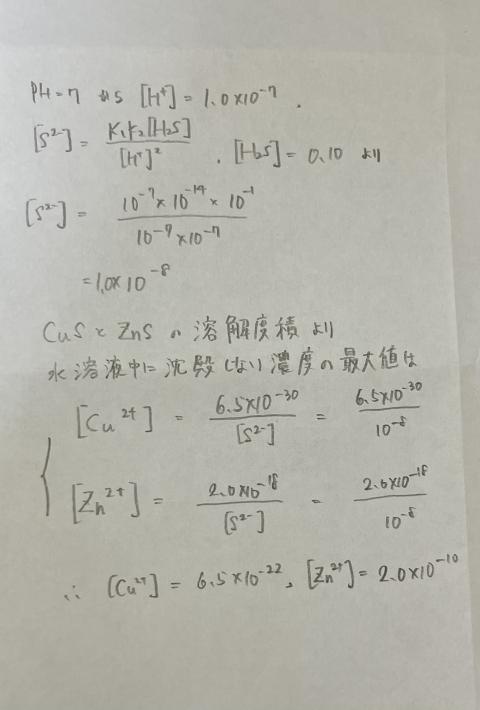 PH=7 から [H⁺] = 1.0×10⁻⁷.
[S²⁻] = K₁K₂[H₂S] / [H⁺]² . [H₂S] = 0.10 より
[S²⁻] = 10⁻⁷×10⁻¹⁴×10⁻¹ / 10⁻⁷×10⁻⁷
=1.0×10⁻⁸
CuSとZnSの溶解度積より
水溶液中に沈殿しない濃度の最大値は
[Cu²⁺] = 6.5×10⁻³⁰ / [S²⁻] = 6.5×10⁻³⁰ / 10⁻⁸
[Zn²⁺] = 2.0×10⁻¹⁸ / [S²⁻] = 2.0×10⁻¹⁸ / 10⁻⁸
∴ [Cu²⁺] = 6.5×10⁻²², [Zn²⁺] = 2.0×10⁻¹⁰